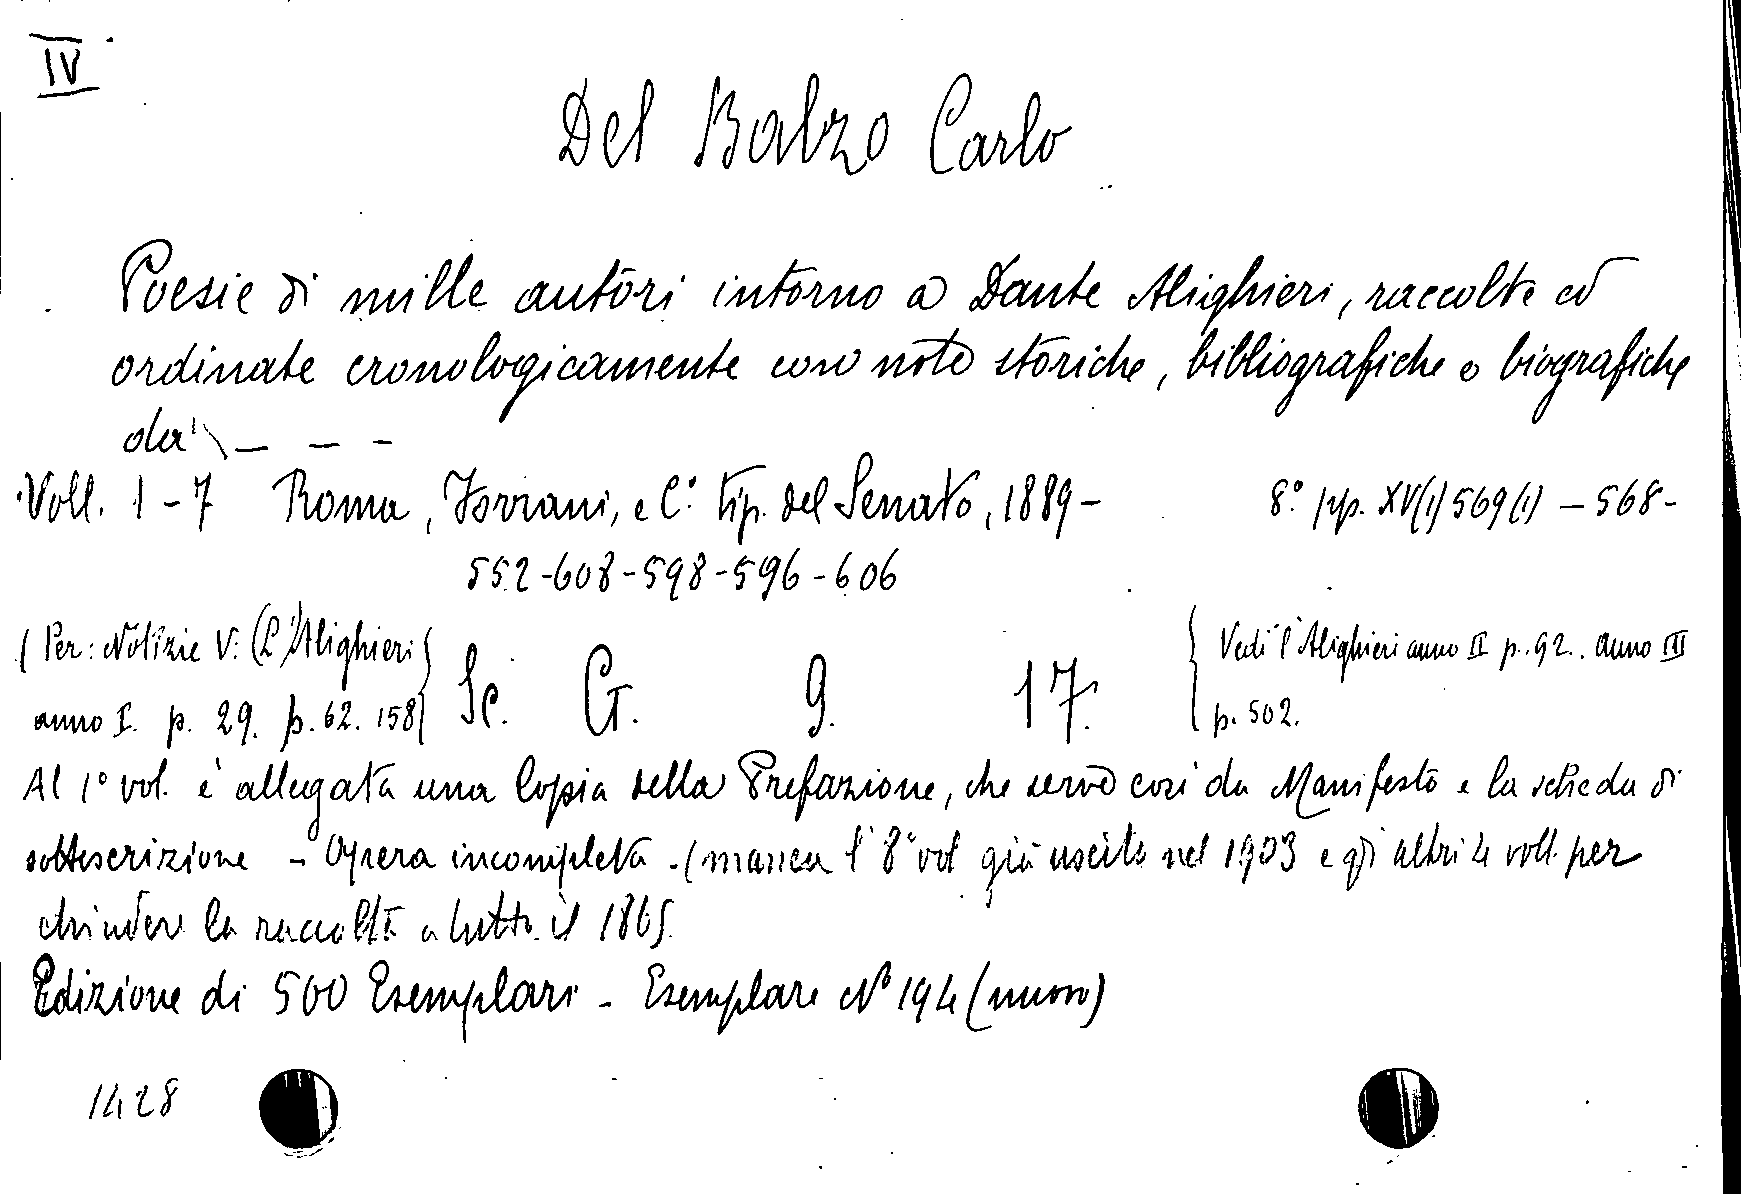 IV
Del Balzo Carlo
Poesie di mille autori intorno a Dante Alighieri, raccolte ed
ordinate cronologicamente con note storiche, bibliografiche e biografiche
da \_ _ _
Voll. 1-7 Roma, Forzani, e C.° tip. del Senato, 1889- 8.° pp. XV(1) 569(1) - 568-
552-608-598-596-606
(Per: Notizie V: (L'Alighieri}
anno I. p. 29. p. 62. 158} Sc. G. 9. 17. { Vedi l'Alighieri anno II p. 92. anno III
p. 502.
Al 1° vol. è allegata una Copia della Prefazione, che serve così da Manifesto e la scheda di
sottoscrizione - Opera incompleta - (manca l'8° vol già uscito nel 1903 e gli altri 4 voll. per
chiudere la raccolta a tutto il 1865.
Edizione di 500 Esemplari - Esemplare N° 194 (nuovo)
1428